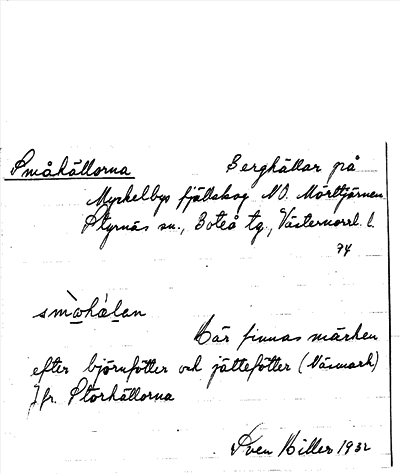 Småhällorna Berghällar på
Myckelbys fjällskog NO. Mörttjärnen
Styrnäs sn., Boteå tg., Västernorrl. l.
74
småhälan
Här finnas märken
efter björnfötter och jättefötter (Näsmark)
Jfr. Storhällorna
Sven Hiller 1932